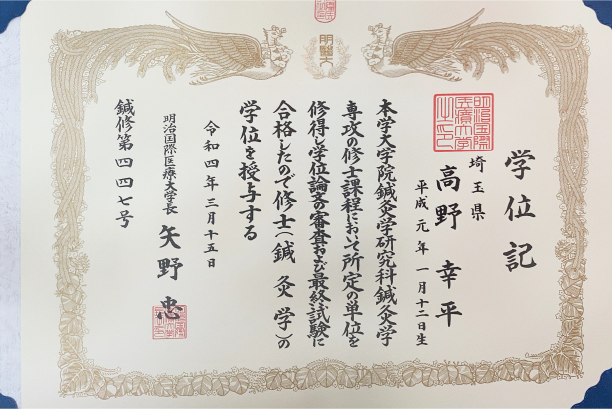 学位記
埼玉県
高野幸平
平成元年一月十二日生
本学大学院鍼灸学研究科鍼灸学
専攻の修士課程において所定の単位を
修得し学位論文の審査および最終試験に
合格したので修士(鍼灸学)の
学位を授与する
令和四年三月十五日
明治国際医療大学長 矢野忠
鍼修第四四七号
明治国際
医療大学
之印